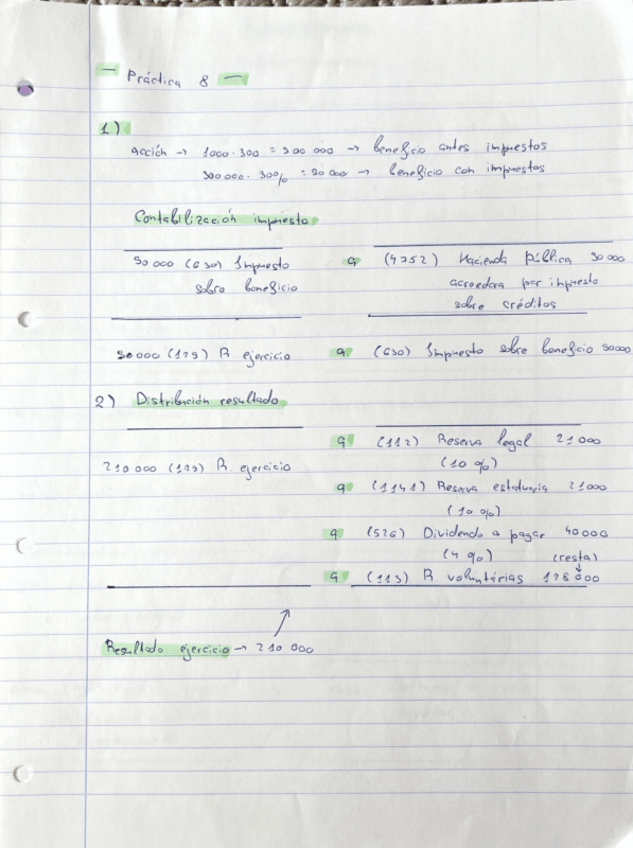 — Práctica 8 —
1)
acción → 1000 · 300 = 300 000 → beneficio antes impuestos
300 000 · 30% = 90 000 → beneficio con impuestos
Contabilización impuesto
90 000 (630) Impuesto sobre beneficio a (4752) Hacienda Pública 90 000
acreedora por impuesto
sobre créditos
90000 (129) R ejercicio a (630) Impuesto sobre beneficio 90000
2) Distribución resultado
a (112) Reserva legal 21 000
210 000 (129) R ejercicio (10 %)
a (1141) Reserva estatuaria 21000
(10 %)
a (526) Dividendo a pagar 40000
(4 %) (resta)
a (113) R voluntárias 128000
Resultado ejercicio → 210 000